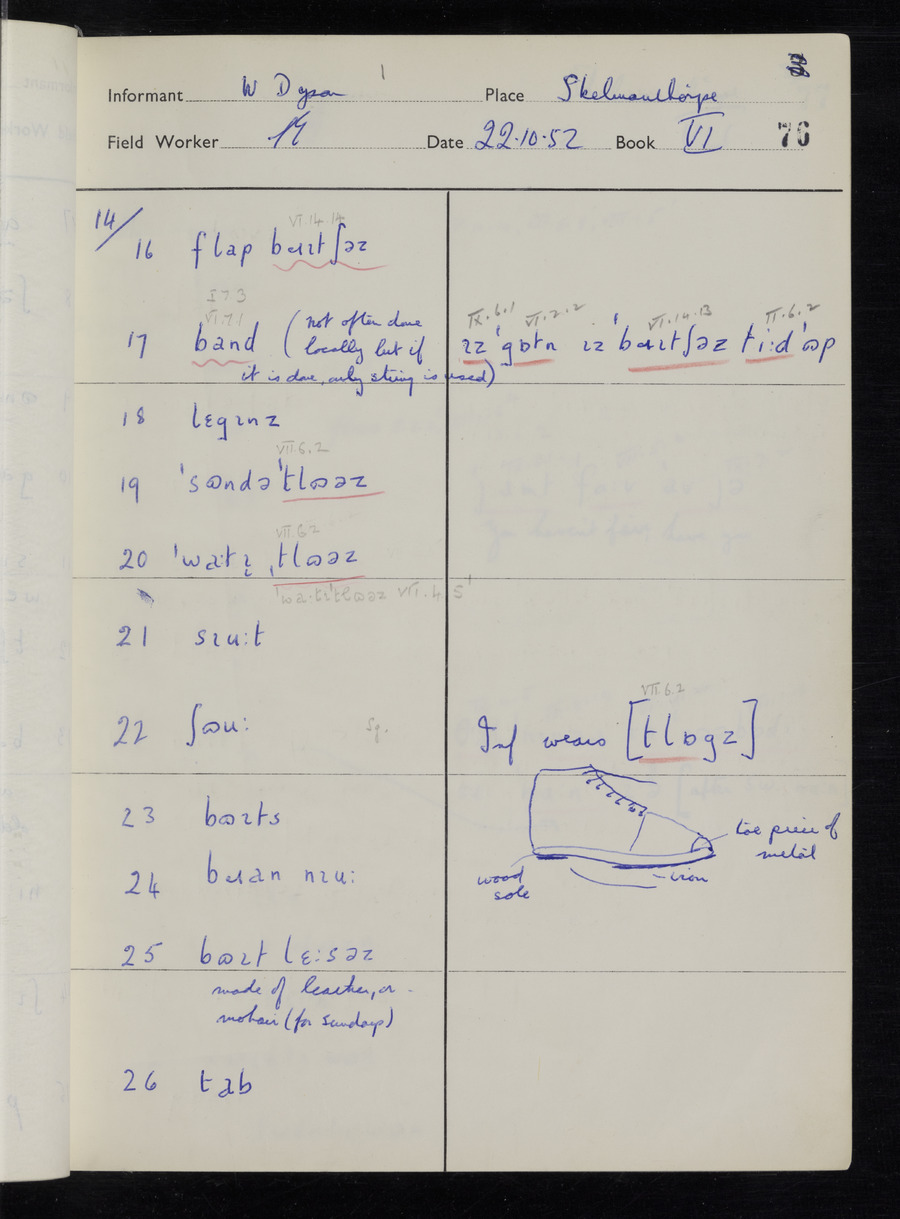 Informant W Dyson Place Skelmanthorpe
Field Worker Date 22.10.52 Book VI 76
14/
VI.14.14
16 flap bɹɪtʃəz
I 7 3
VI.7.1
17 band (not often done
locally but if
it is done, only string is used)
IX.6.1 VI.2.2 VI.14.13 II.6.2
ɪz 'gɒtn ɪz 'bɹɪtʃəz ti:d 'ɷp
18 lɛgɪnz
VII.6.2
19 'sɷndə'tlɷəz
VII.6.2
20 'wa:tɪ ˌtlɷəz
'wa:tɪ'tlɷəz VII.4.5
21 sɪu:t
22 ʃɷu: Sg.
VII.6.2
Inf wears [tlɒgz]
23 bɷɪts
toe piece of
metal
24 bɹan nɪu:
wood
sole
iron
25 bɷɪt lɛ:səz
made of leather, or
mohair (for Sundays)
26 tab